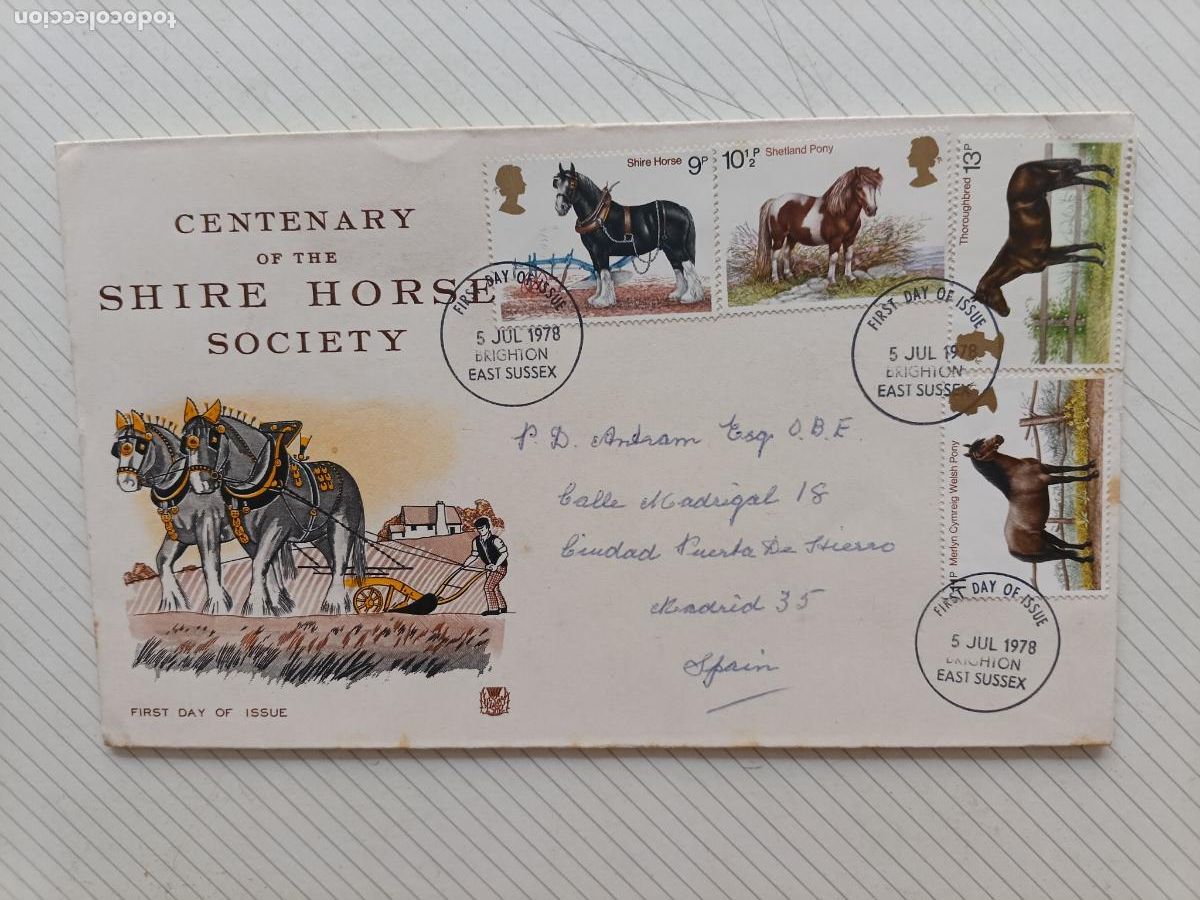 todocoleccion
CENTENARY
OF THE
SHIRE HORSE
SOCIETY
FIRST DAY OF ISSUE
Shire Horse 9P
10½P Shetland Pony
Thoroughbred 13P
11P Merlyn Cymreig Welsh Pony
FIRST DAY OF ISSUE
5 JUL 1978
BRIGHTON
EAST SUSSEX
FIRST DAY OF ISSUE
5 JUL 1978
BRIGHTON
EAST SUSSEX
P. D. Antram Esq O.B.E.
Calle Madrigal 18
Ciudad Puerta De Hierro
Madrid 35
Spain
FIRST DAY OF ISSUE
5 JUL 1978
BRIGHTON
EAST SUSSEX